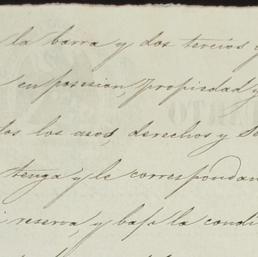 la barra y dos tercios y
en posesion, propiedad y
los los usos, derechos y
tenga y le correspondan
reserva, y bajo la condi